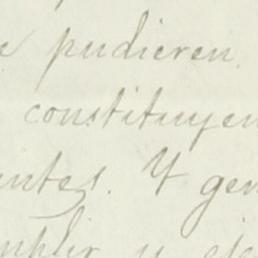 e pudieren.
constituyen
entes. Y gen
mplir y eje